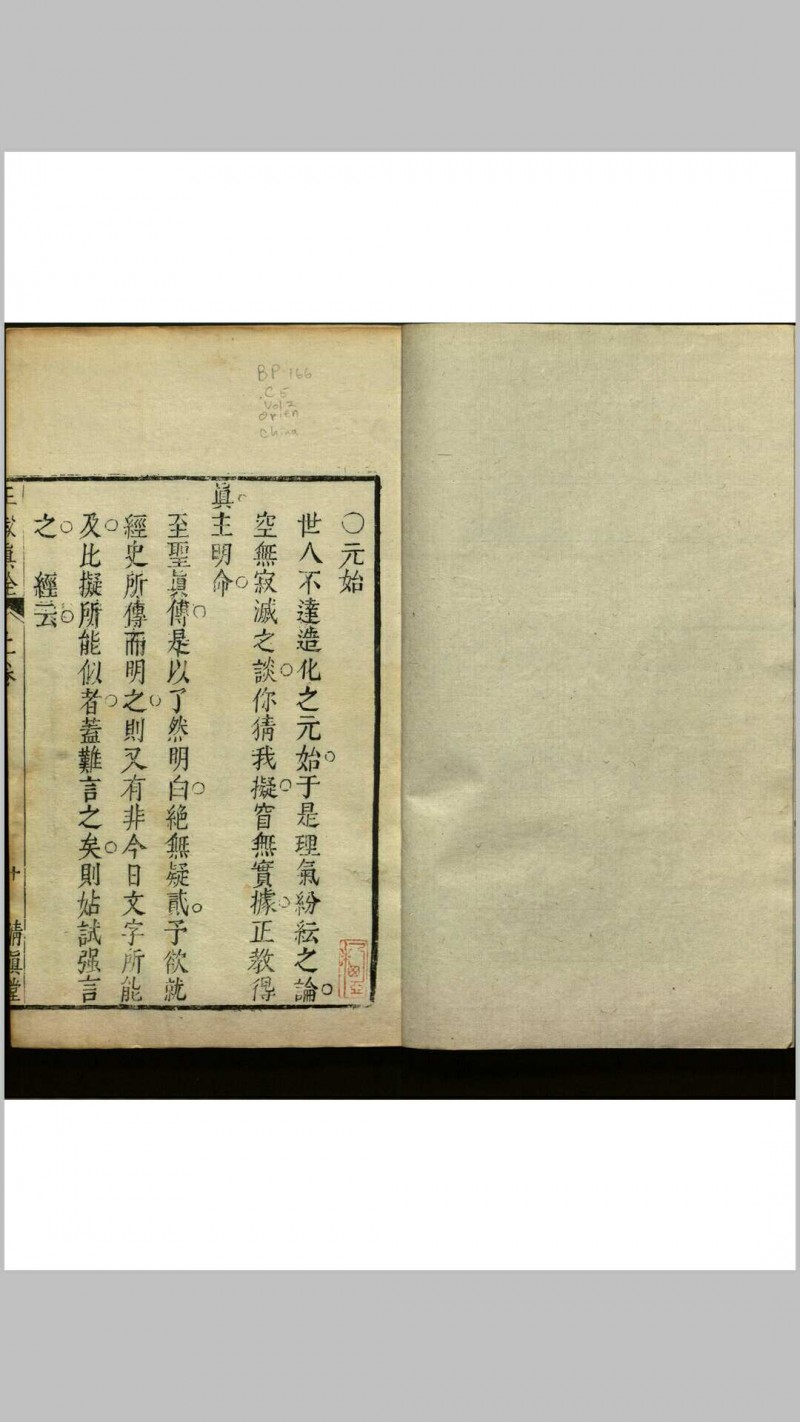 BP 166
.C5
Vol 2
Orien
China
〇元始
世人不達造化之元始〇于是理氣紛紜之論〇
空無寂滅之談〇你猜我擬〇窅無實據〇正教得
眞主明命〇
至聖眞傳〇是以了然明白〇絶無疑貳〇予欲就
經史所傳而明之〇則又有非今日文字所能
及〇比擬所能似者〇蓋難言之矣〇則姑試强言
之〇　經云〇
眞詮　上卷　十　清眞堂